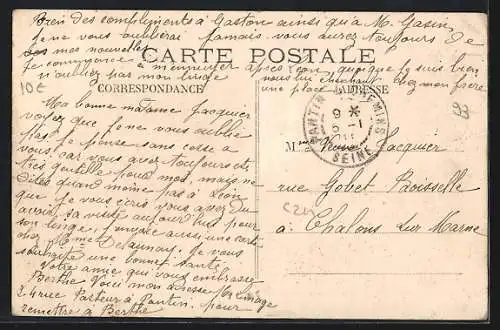 Bien des compliments à Gaston ainsi qu'a M. Gasin
je ne vous oublierai jamais vous aurez toujours de
mes nouvelles
CARTE POSTALE
je commence à m'ennuyer après Léon quoique je suis bien
n'oubliez pas mon linge
nous lui cherchons chez mon frère
une place
CORRESPONDANCE
ADRESSE
10€
Ma bonne madame Jacquier
voyez que je ne vous oublie
pas je pense sans cesse a
vous, car vous avez toujours été
très gentille pour moi, mais ne
dites quand même pas à Léon
que je vous écris vous avez du
avoir sa visite aujourd'hui pour
son linge, j'envoie aussi une carte
chez Mme Delaunay. Je vous
souhaite une bonne santé
Votre amie qui vous embrasse
Berthe Voici mon adresse
24 rue Pasteur à Pantin. pour
remettre à Berthe
PANTIN
CHEMINS
9
5-1
SEINE
Mme Veuve Jacquier
rue Gobet Boisselle
à Chalons sur Marne